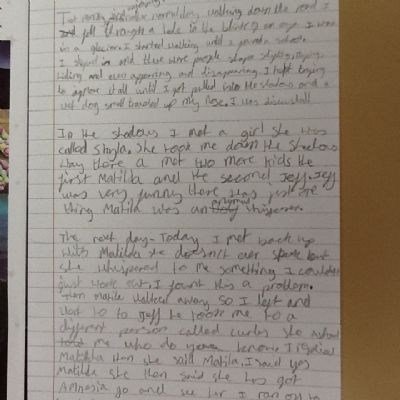 normal day, walking down the road I
fell through a hole in the blink of an eye. I was
in a glacier. I started walking until I found a school.
I stepped in and there were people shape shifting, flying,
hiding and even appearing and disappearing. I kept trying
to ignore it all until I got pulled into the shadows and a
wet dog smell traveled up my nose. I was
In the shadows I met a girl she was
called Shayla. She took me down the shadows
way there a met two more kids the
first Matilda and the second Jeff. Jeff
was very funny there was just one
thing Matilda was an whisperer.
The next day - Today I met back up
with Matilda she doesn't ever speak but
she whispered to me something I couldn't
just work out. I fount this a problem.
Then walked away so I left and
went to to Jeff he took me to a
different person called she asked
me who do you know I replied
Matilda then she said Matilda, I said yes
Matilda she then said she has got
Amnesia go and see her I ran off to